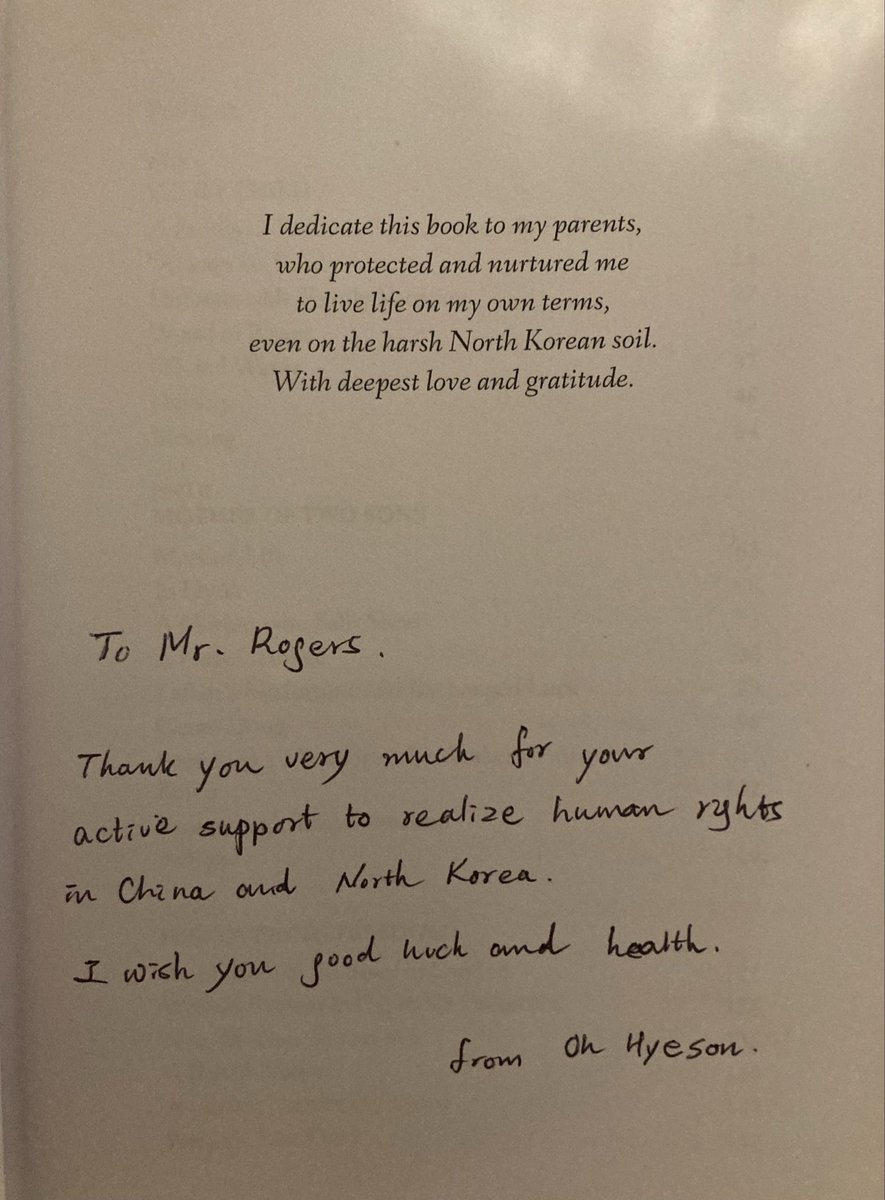 I dedicate this book to my parents,
who protected and nurtured me
to live life on my own terms,
even on the harsh North Korean soil.
With deepest love and gratitude.
MOTHER OF TWO SONS
To Mr. Rogers.
Thank you very much for your
active support to realize human rights
in China and North Korea.
I wish you good luck and health.
from Oh Hyeson.